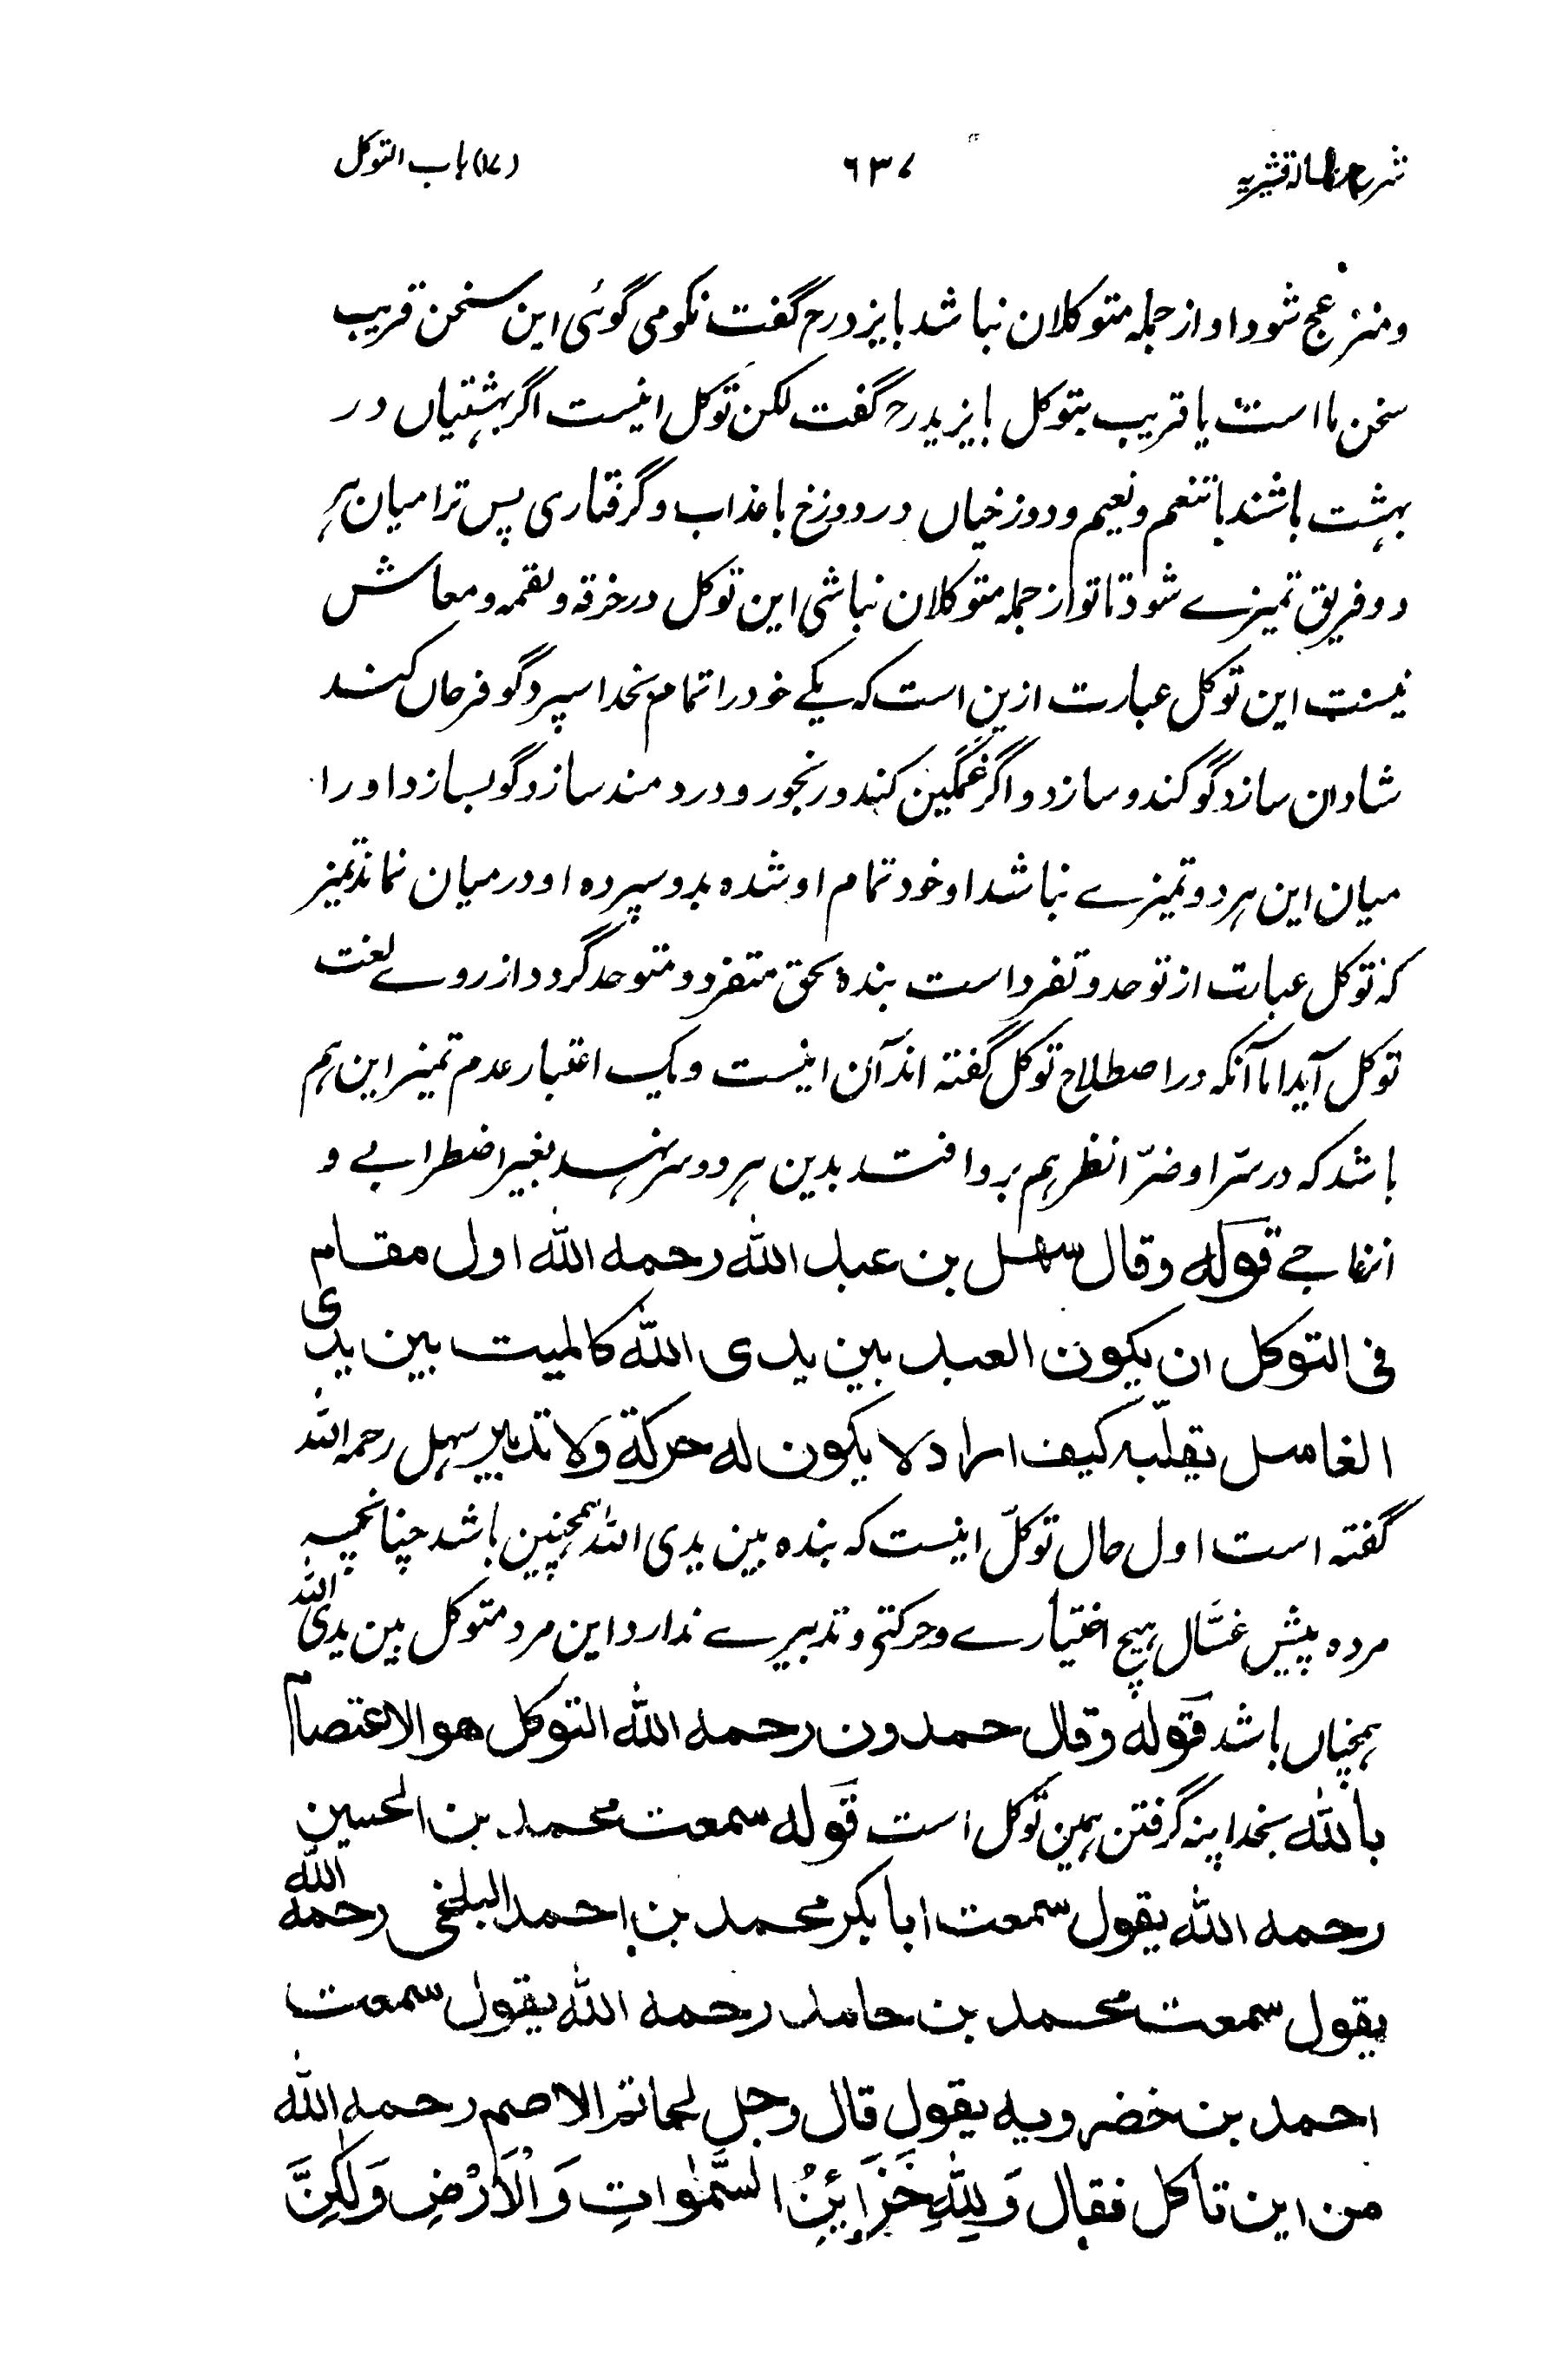 شرح رسالہ قشیریہ ۶۳۷ (۱۷) باب التوکل
ومنزعج شود او از جملہ متوکلان نباشد بایزید رح گفت نکو می گوئی این سخن قریب
سخن ما است یا قریب بتوکل بایزید رح گفت لکن توکل اینست اگر بہشتیاں در
بہشت باشند با تنعم و نعیم و دوزخیاں در دوزخ با عذاب و گرفتاری پس ترا میان ہر
دو فریق تمیزے شود تا تو از جملہ متوکلان نباشی این توکل در خرقہ و لقمہ و معاش
نیست این توکل عبارت ازین است کہ یکے خود را تمام بخدا سپرد گو فرحاں کند
شادان سازد گو کند و سازد و اگر غمگین کند و رنجور و درد مند سازد گو بسازد او را
میان این ہر دو تمیزے نباشد او خود تمام او شدہ بدو سپردہ او درمیان نماند تمیز
کہ توکل عبارت از توحد و تفرد است بندۂ بحق متفرد و متوحد گردد از روے لغت
توکل آید اما آنکہ در اصطلاح توکل گفتہ اند آن اینست و یک اعتبار عدم تمیز این ہم
باشد کہ در سرّا و ضرّا نظر ہم برو افتد بدین ہر دو سر نہد بغیر اضطرابے و
انزعاجے قوله وقال سهل بن عبد الله رحمه الله اول مقام
فی التوکل ان یکون العبد بین یدی الله کالمیت بین یدی
الغاسل یقلّبه کیف اراد لا یکون له حرکة ولا تدبیر سہل رحمہ اللہ
گفتہ است اول حال توکلّ اینست کہ بندہ بین یدی اللہ ہمچنین باشد چنانچہ
مردہ پیش غسّال ہیچ اختیارے و حرکتی و تدبیرے ندارد این مرد متوکل بین یدی اللہ
ہمچناں باشد قوله وقال حمدون رحمه الله التوکل هو الاعتصام
بالله بخدا پنہ گرفتن ہمین توکل است قوله سمعت محمد بن الحسین
رحمه الله یقول سمعت ابا بکر محمد بن احمد البلخی رحمه الله
یقول سمعت محمد بن حامد رحمه الله یقول سمعت
احمد بن خضرویه یقول قال رجل لحاتم الاصم رحمه الله
من این تاکل فقال وَلِلّٰهِ خَزَآئِنُ السَّمٰوَاتِ وَالْاَرْضِ وَلٰکِنَّ